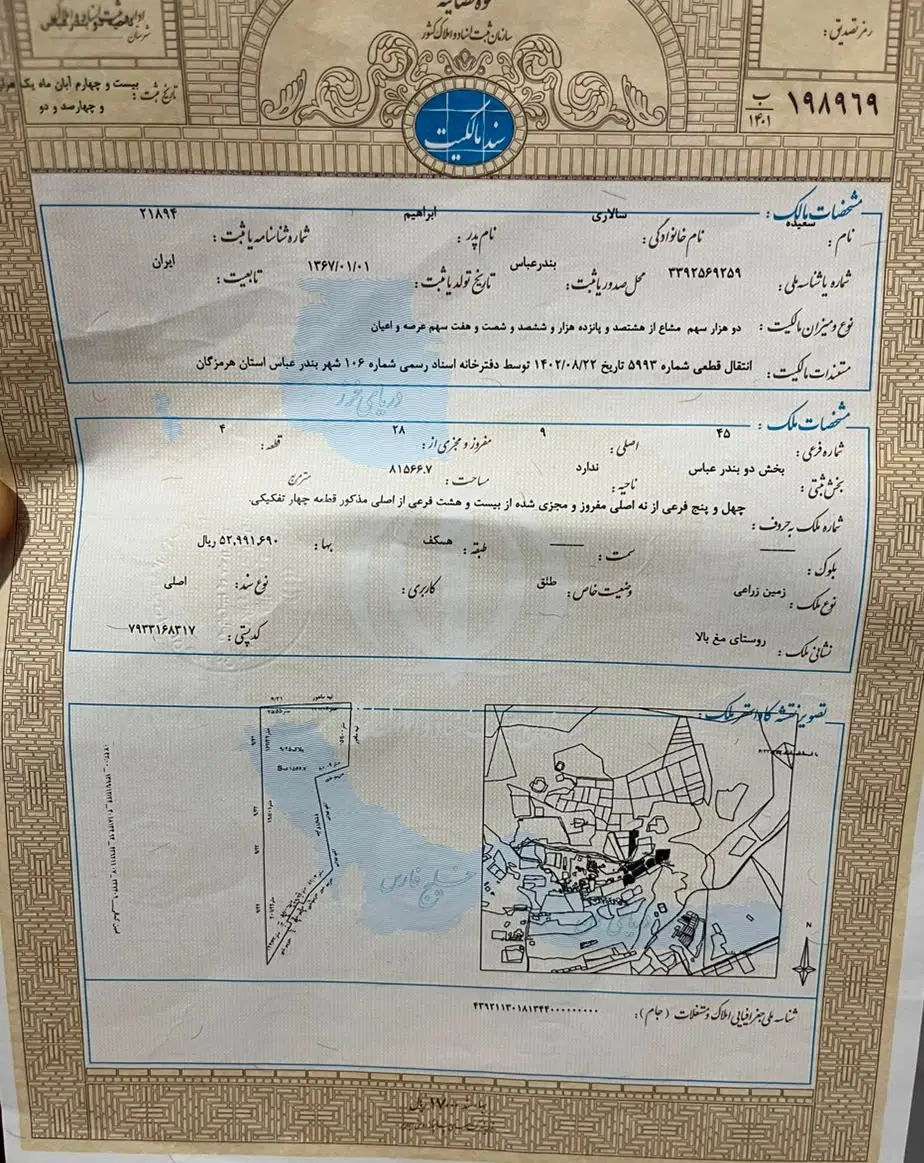 قوه قضائیه
سازمان ثبت اسناد و املاک کشور
رمز تصدیق :
شهرستان
تاریخ ثبت : بیست و چهارم آبان ماه یک هزار
و چهارصد و دو
۱۹۸۹۶۹ ب ۱۴۰۱
سند مالکیت
مشخصات مالک :
نام : سعیده نام خانوادگی : سالاری نام پدر : ابراهیم شماره شناسنامه یا ثبت : ۲۱۸۹۴
شماره یا شناسه ملی : ۳۳۹۲۵۶۹۲۵۹ محل صدور یا ثبت : بندرعباس تاریخ تولد یا ثبت : ۱۳۶۷/۰۱/۰۱ تابعیت : ایران
نوع و میزان مالکیت : دو هزار سهم مشاع از هشتصد و پانزده هزار و ششصد و شصت و هفت سهم عرصه و اعیان
مستندات مالکیت : انتقال قطعی شماره ۵۹۹۳ تاریخ ۱۴۰۲/۰۸/۲۲ توسط دفترخانه اسناد رسمی شماره ۱۰۶ شهر بندر عباس استان هرمزگان
دریای خزر
مشخصات ملک :
شماره فرعی : ۴۵ اصلی : ۹ مفروز و مجزی از : ۲۸ قطعه : ۴
بخش ثبتی : بخش دو بندر عباس ناحیه : ندارد مساحت : ۸۱۵۶۶.۷ مترمربع
شماره ملک به حروف : چهل و پنج فرعی از نه اصلی مفروز و مجزی شده از بیست و هشت فرعی از اصلی مذکور قطعه چهار تفکیکی.
بلوک : ـــــ سمت : ـــــ طبقه : همکف بها : ۵۲,۹۹۱,۶۹۰ ریال
نوع ملک : زمین زراعی وضعیت خاص : طلق کاربری : نوع سند : اصلی
نشانی ملک : روستای مغ بالا کدپستی : ۷۹۳۳۱۶۸۳۱۷
تصویر نقشه کاداستر ملک :
خلیج فارس
N
شناسه ملی جغرافیایی املاک و مستغلات (جام) : ۴۳۹۲۱۱۳۰۱۸۱۳۴۴۰۰۰۰۰۰۰۰۰۰